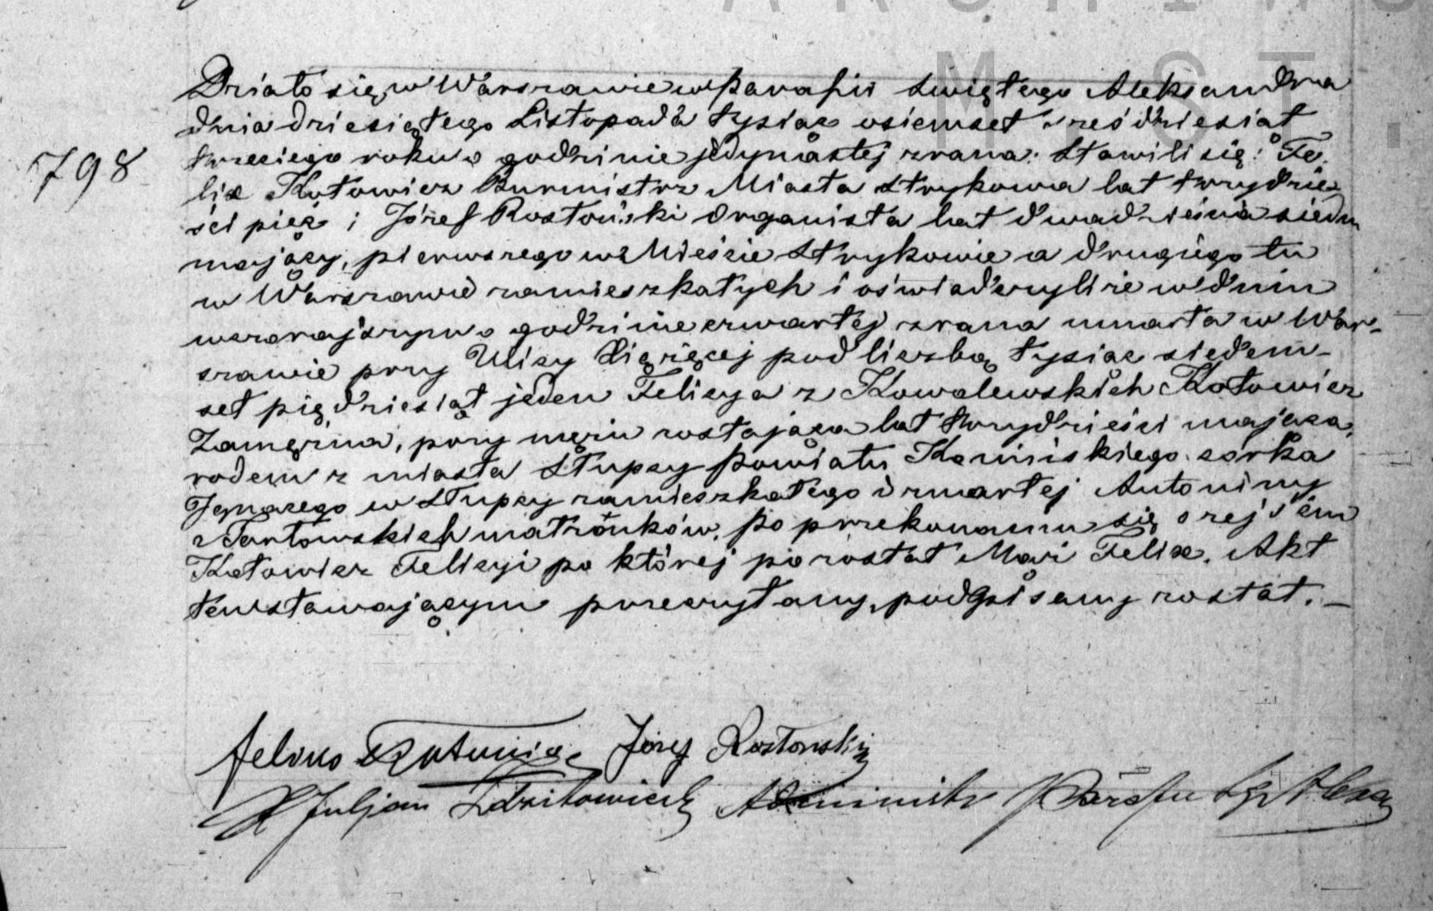 ARCHIWU
M. ST.
798
Działo się w Warszawie w Parafii Świętego Alexandra
dnia dziesiątego Listopada tysiąc osiemset sześćdziesiąt
trzeciego roku o godzinie jedynastej zrana. Stawili się: Fe-
lix Kotowicz Burmistrz Miasta Strykowa lat trzydzie-
ści pięć i Józef Rostoński Organista lat dwadzieścia siedm
mający, pierwszego w Mieście Strykowie a drugiego tu
w Warszawie zamieszkałych i oświadczyli że w dniu
wczorajszym o godzinie czwartej zrana umarła w War-
szawie przy Ulicy Xiążęcej pod liczbą tysiąc siedem-
set pięćdziesiąt jeden Felicya z Kowalewskich Kotowicz
Zamężna, przy mężu zostająca lat trzydzieści mająca,
rodem z miasta Słupcy Powiatu Konińskiego córka
Ignacego w Słupcy zamieszkałego i zmarłej Antoniny
z małżonków. Po przekonaniu się o zejściu
Kotowicz Felicyi po której pozostał Mąż Felix. Akt
ten stawającym przeczytany, podpisany został. –
Józef Rostoński
X Juljan Administr Parafii Św. Alexa